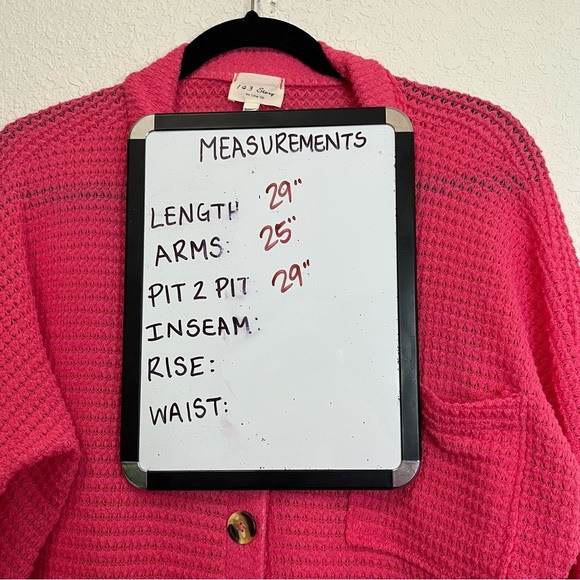 143 Story
MEASUREMENTS
LENGTH 29"
ARMS: 25"
PIT 2 PIT 29"
INSEAM:
RISE:
WAIST: